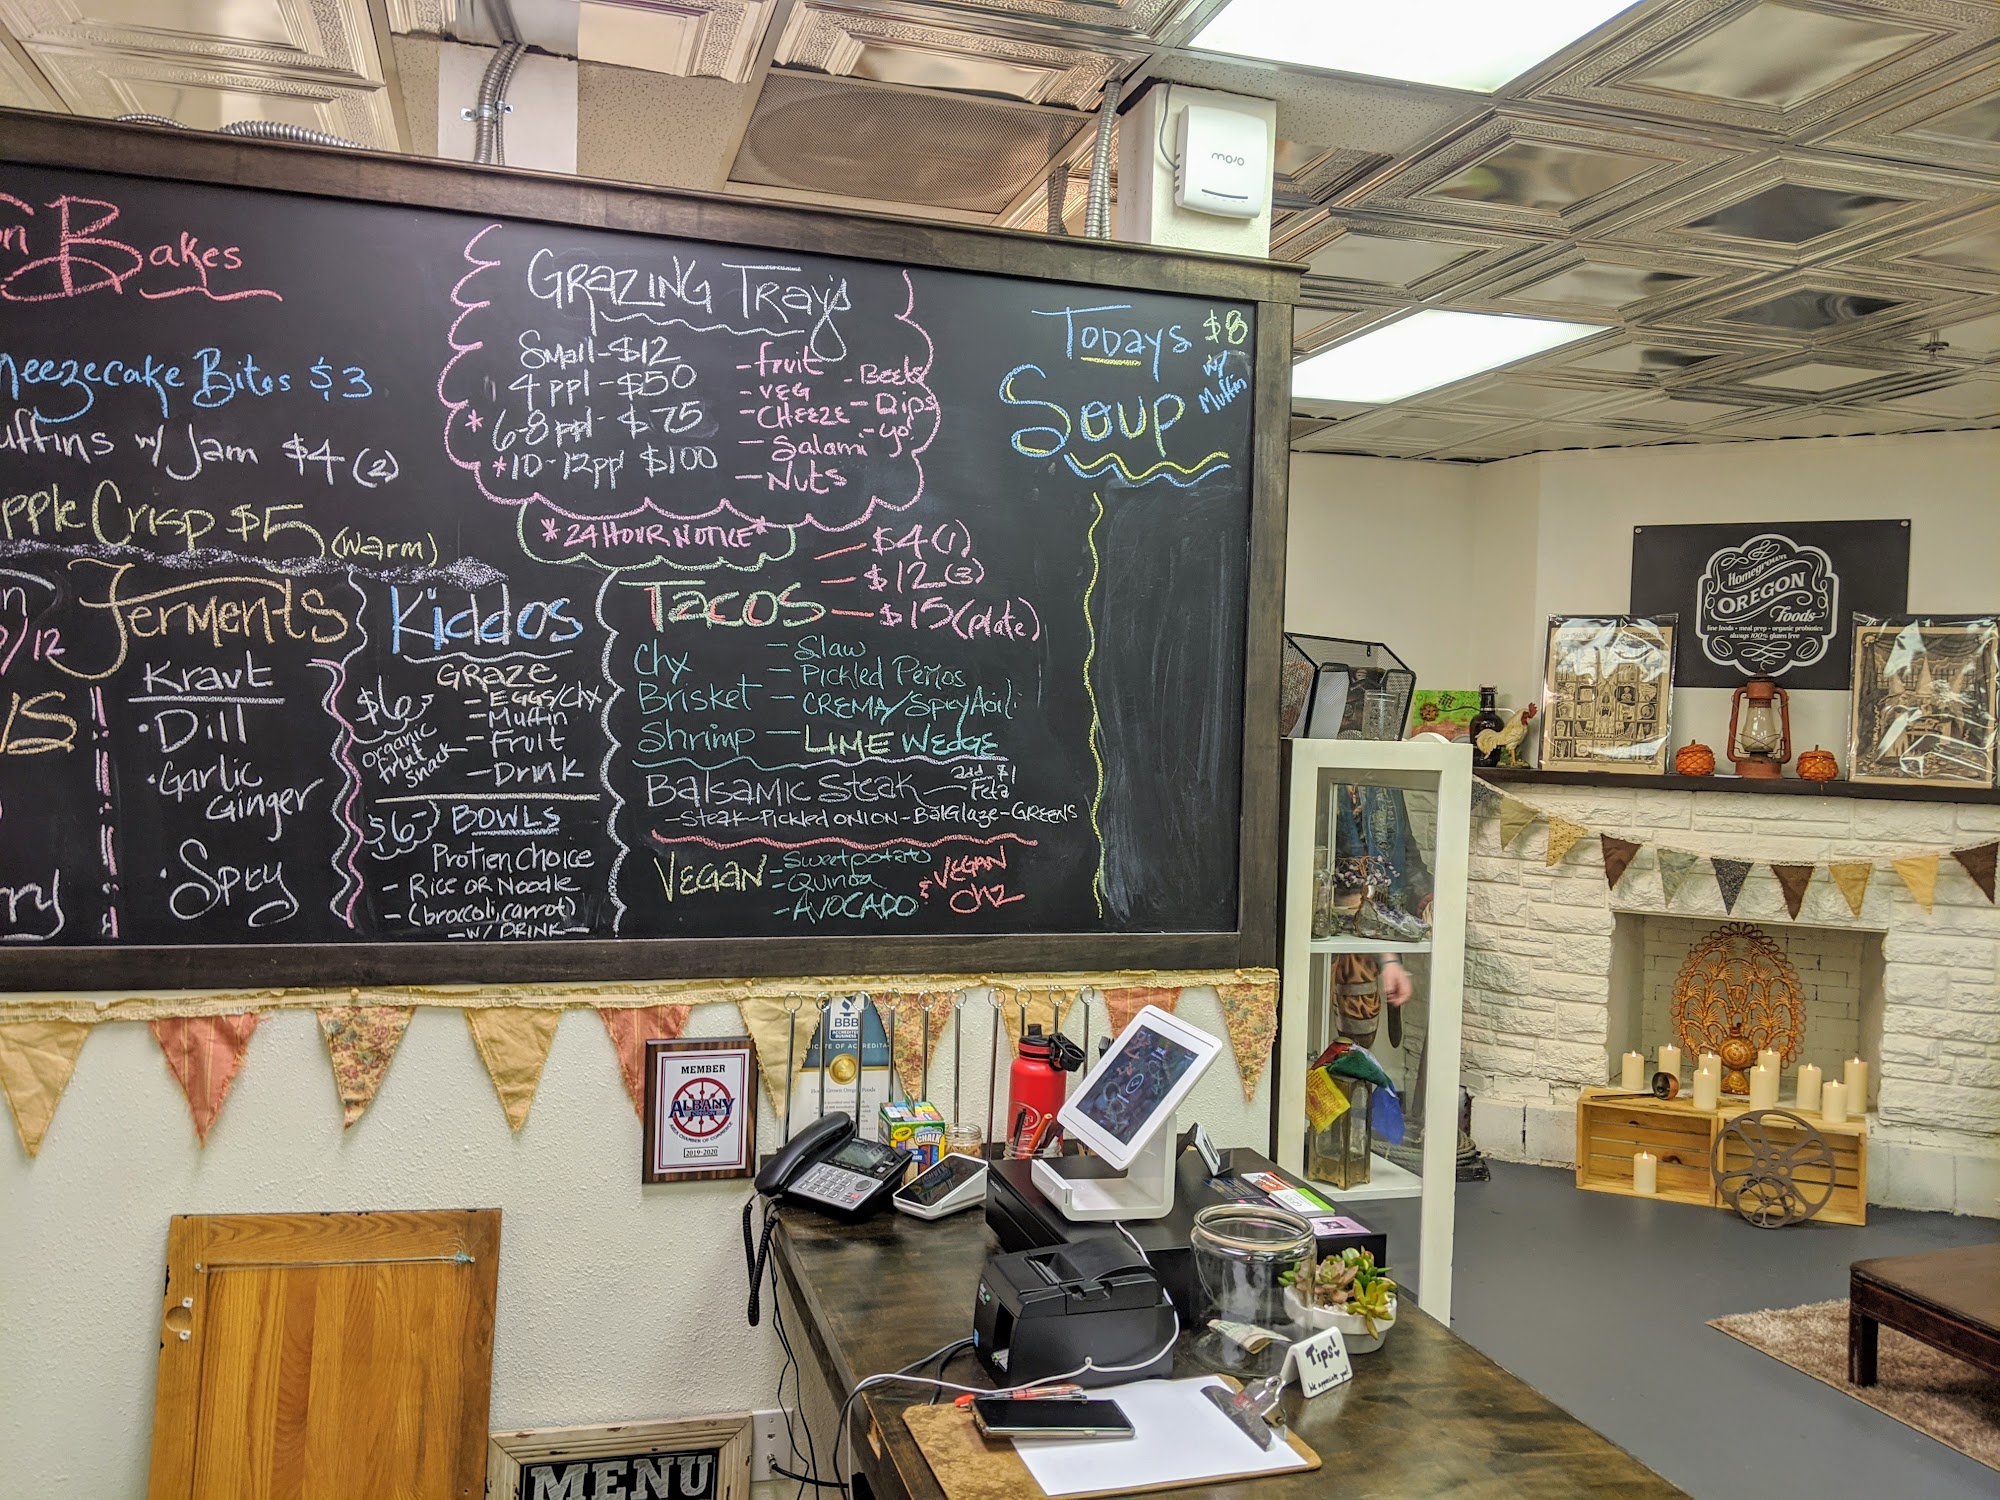 Bakes
heezecake Bites $3
uffins w/ Jam $4 (2)
pple Crisp $5 (warm)
/12
Ferments
Kraut
·Dill
·Garlic
Ginger
·Spicy
GRAZING Trays
Small-$12
4 ppl - $50
*6-8ppl - $75
*10-12ppl $100
-fruit
-VEG
-CHEEZE
-Salami
-Nuts
-Beets
-Dips
-yo!
*24 HOUR NOTICE*
Kiddos
GRAZE
$6
organic
fruit
snack
-EGGS/Chx
-Muffin
-Fruit
-Drink
$6- BOWLS
Protien Choice
- Rice OR Noodle
- (broccoli, carrot)
- W/ DRINK -
Tacos
- $4 (1)
- $12 (3)
- $15 (plate)
Chx
Brisket
Shrimp
- Slaw
- Pickled
- CREMA/
- LIME WEDGE
Balsamic Steak
add $1
Feta
-Steak-Pickled ONION-BalGlaze-GREENS
VEGAN
-Sweetpotato
-Quinoa
-AVOCADO
& VEGAN
Chz
Todays
Soup
$8
w/
Muffin
mojo
Homegrown
OREGON
Foods
fine foods - meal prep - organic probiotics
always 100% gluten free
BBB
ACCREDITED
BUSINESS
MEMBER
ALBANY
AREA CHAMBER OF COMMERCE
2019-2020
Crayola
CHALK
Tips!
We appreciate you!
MENU